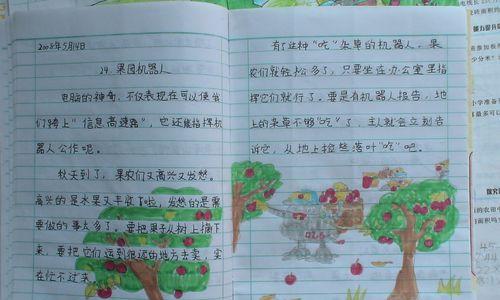 2008年5月14日
24. 果园机器人
电脑的神奇，不仅表现在可以使我
们跨上“信息高速路”，它还能指挥机
器人公作呢。
秋天到了，果农们又高兴又发愁。
高兴的是水果又丰收了啦，发愁的是需
要做的事太多了。要把果子从树上摘下
来，要把它们运到很远的地方去卖，实
在忙不过来。
有了这种“吃”杂草的机器人，果
农们就轻松多了，只要坐在办公室里指
挥它们就行了。要是有机器人报告，地
上的杂草不够“吃”了，主人就会立刻告
诉它，从地上捡些落叶“吃”吧。